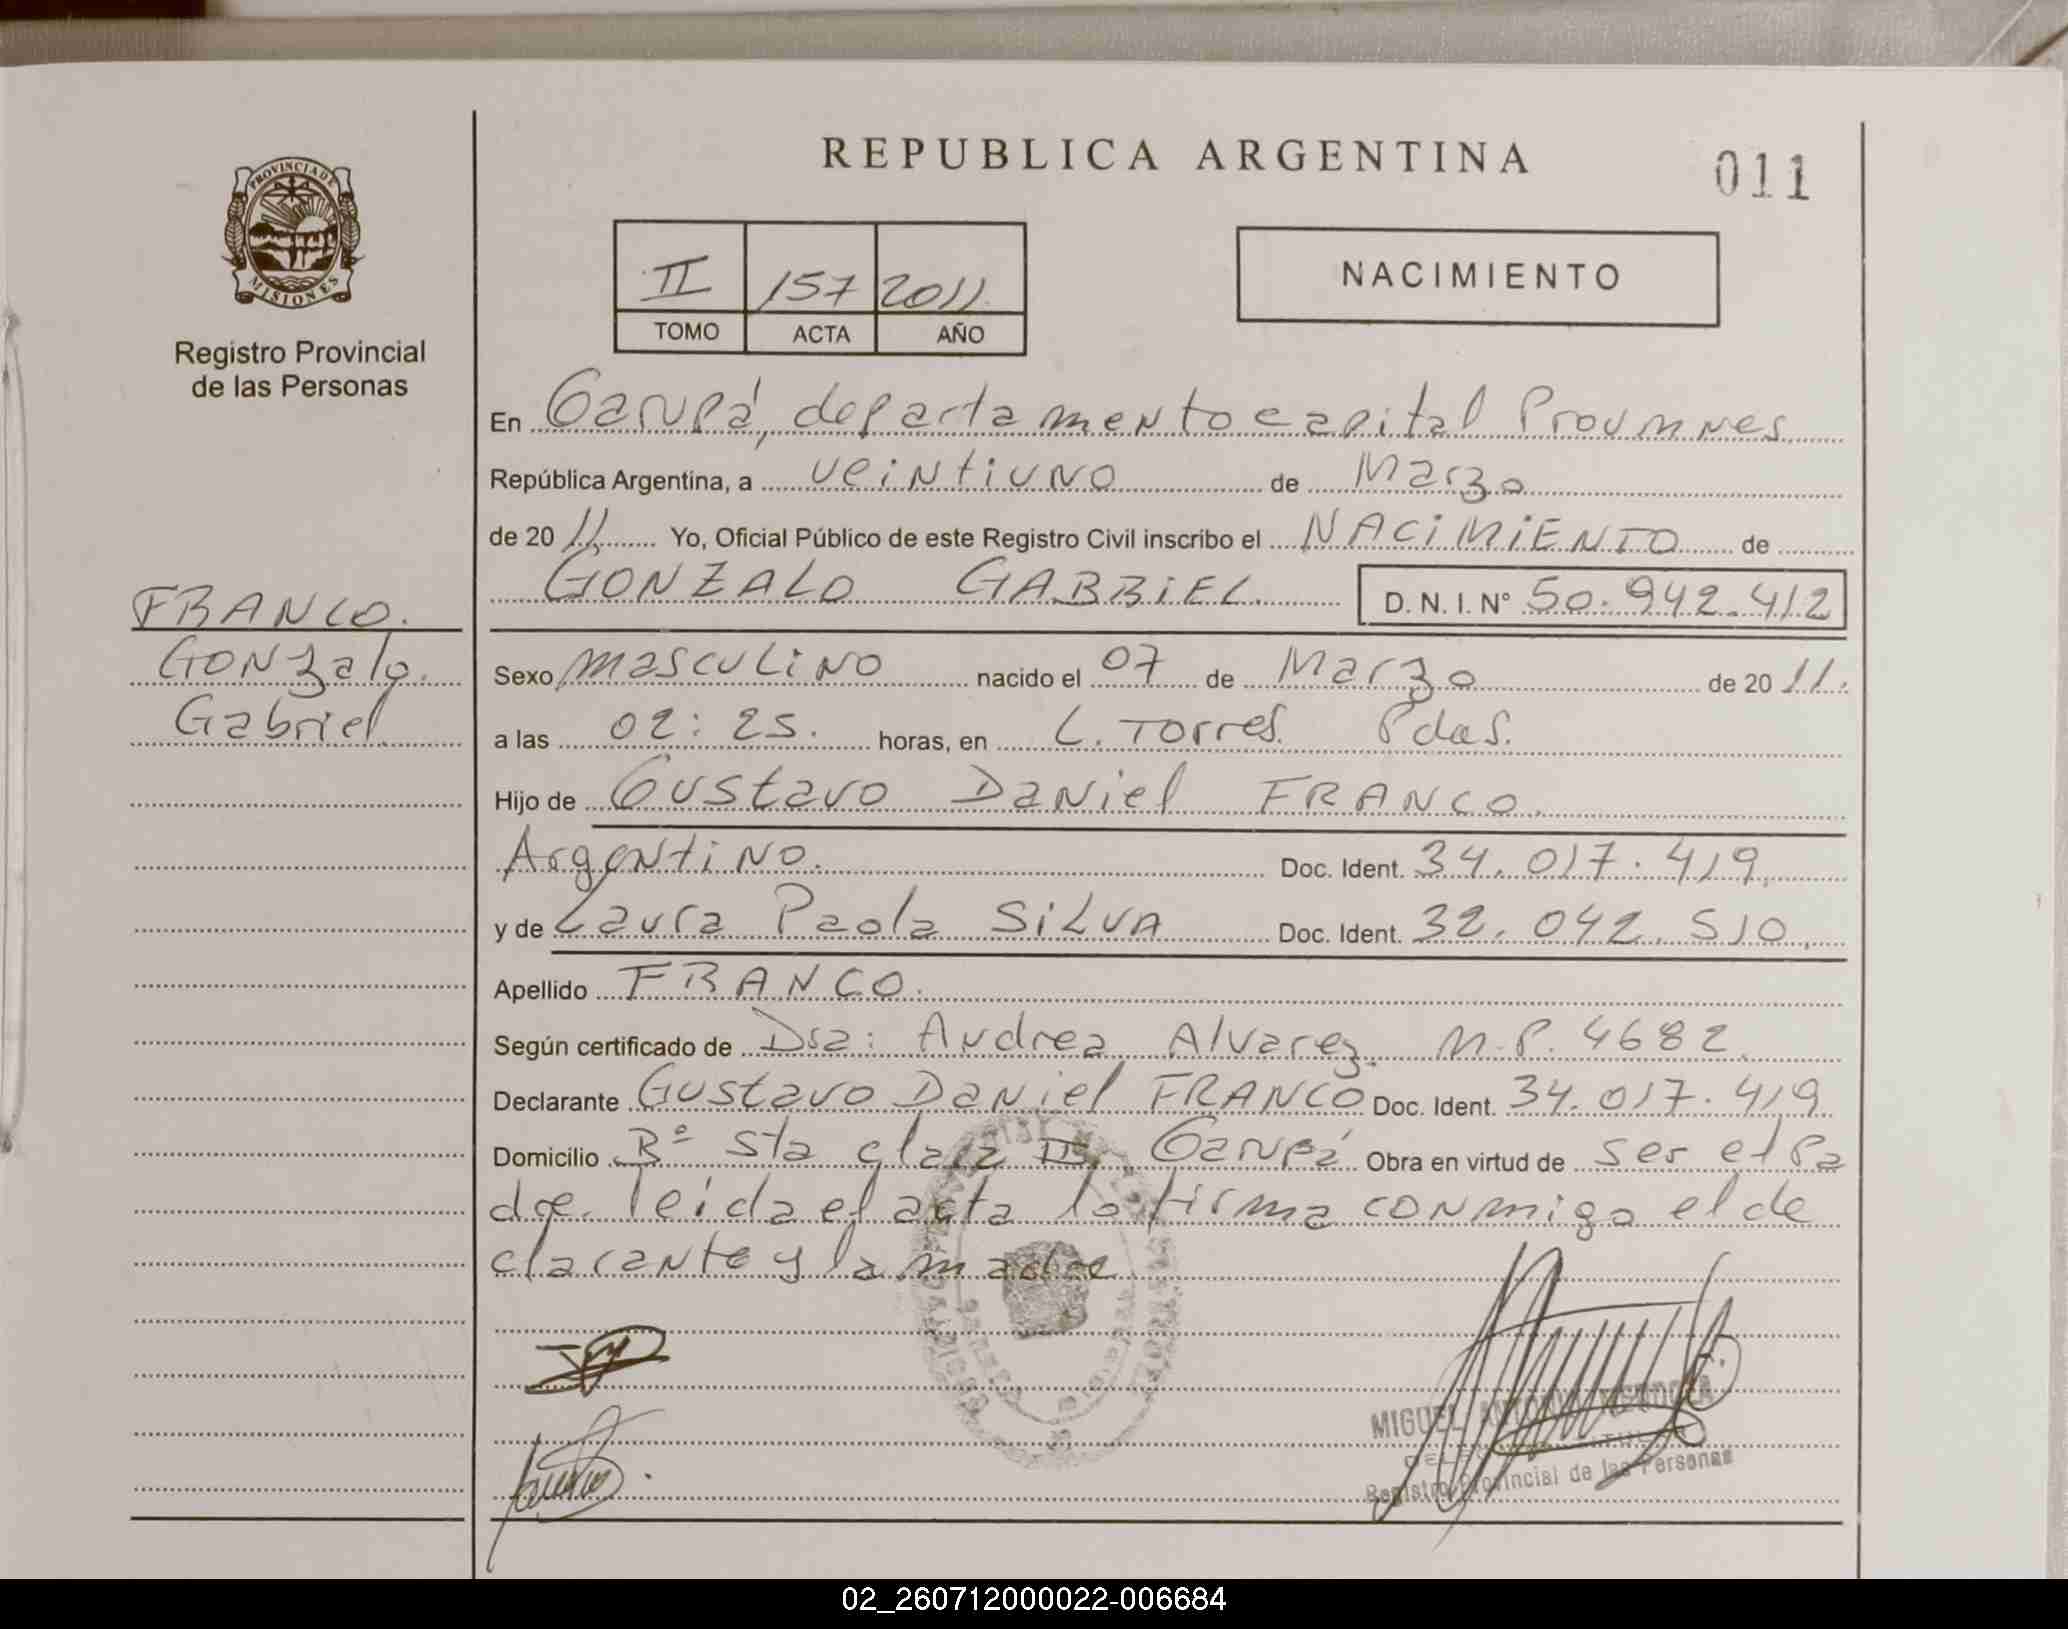 REPUBLICA ARGENTINA
011
PROVINCIA DE
MISIONES
Registro Provincial
de las Personas
II 157 2011
TOMO ACTA AÑO
NACIMIENTO
En Garupá, departamento capital
República Argentina, a veintiuno de Marzo
de 2011 Yo, Oficial Público de este Registro Civil inscribo el NACIMIENTO de
GONZALO GABRIEL D. N. I. N° 50.942.412
FRANCO.
Gonzalo.
Gabriel
Sexo masculino nacido el 07 de Marzo de 2011.
a las 02:25. horas, en L. Torres. Pdas.
Hijo de Gustavo Daniel FRANCO.
Argentino. Doc. Ident. 34.017.419.
y de Laura Paola SILVA Doc. Ident. 32.042.510.
Apellido FRANCO.
Según certificado de Dra: Andrea Alvarez. M.P. 4682.
Declarante Gustavo Daniel FRANCO Doc. Ident. 34.017.419
Domicilio Bº Sta clara II, Garupá Obra en virtud de ser el pa
dre. leida el acta la firma conmigo el de
clarante y la madre
MIGUEL ANTONIO MENDOZA
Registro Provincial de las Personas
02_260712000022-006684